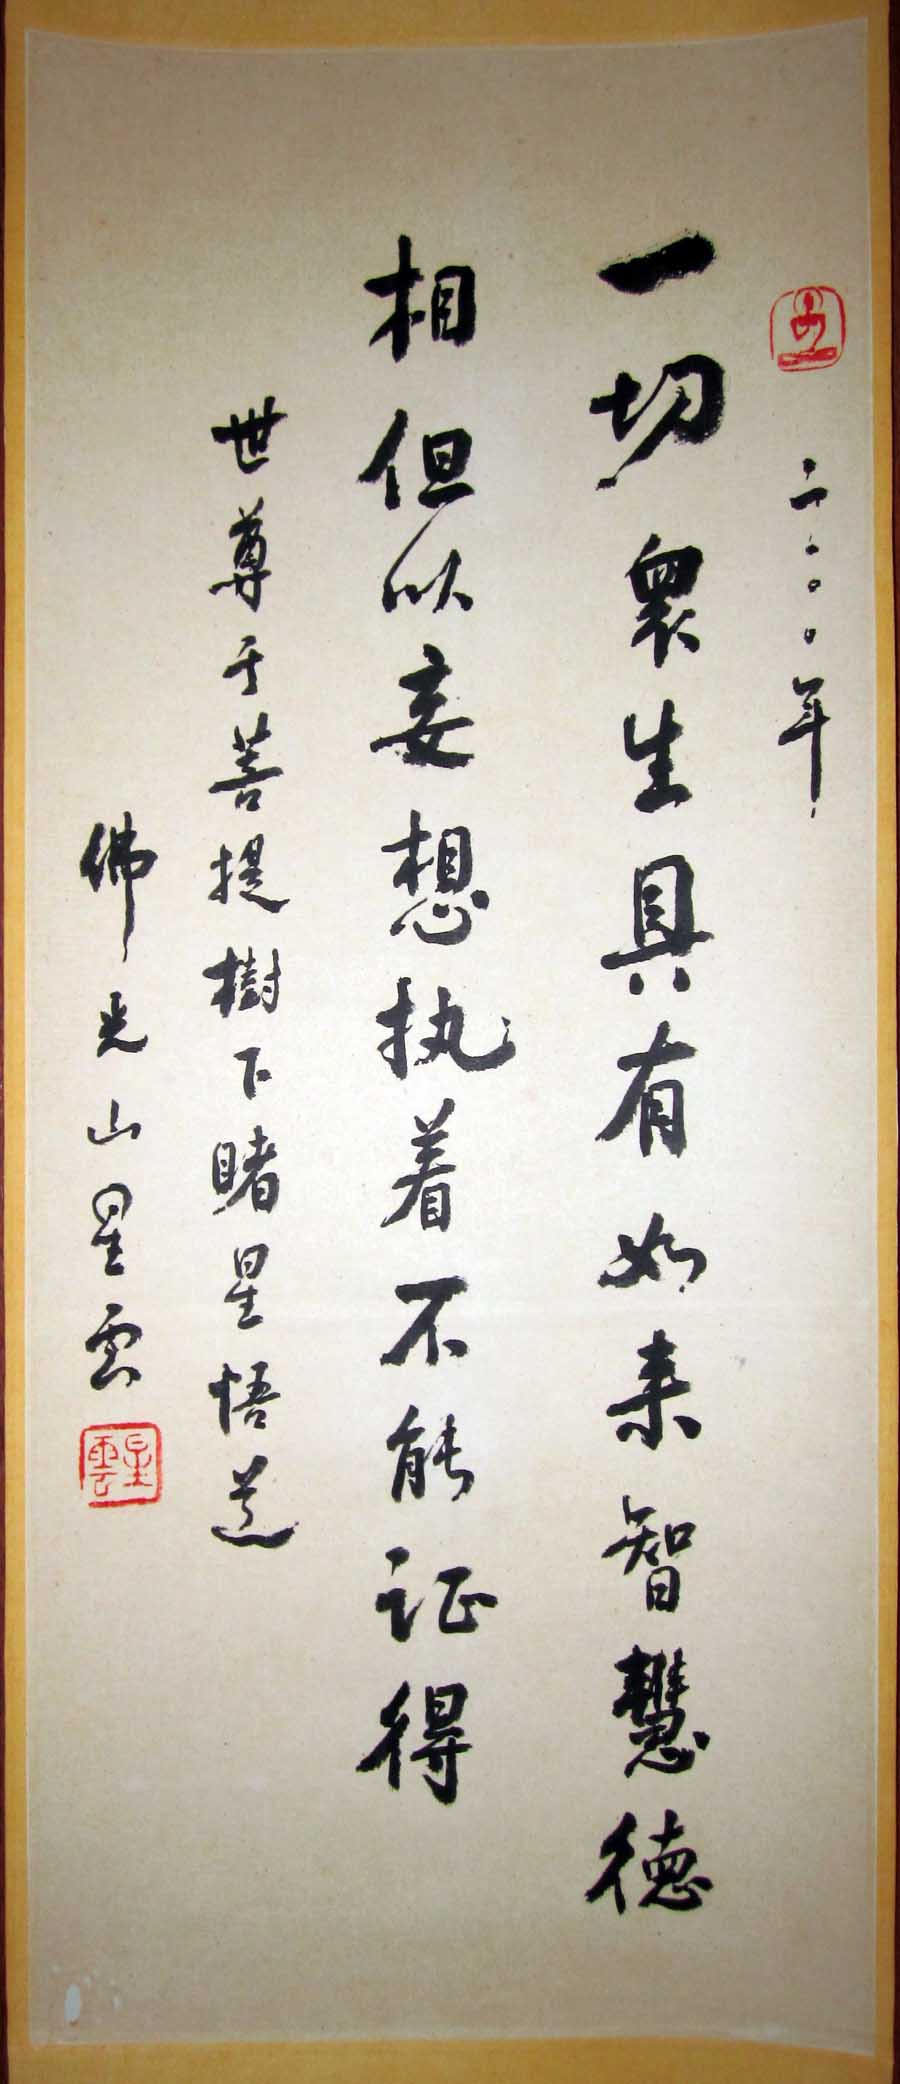 二〇〇〇年
一切衆生具有如来智慧德
相但以妄想执着不能证得
世尊于菩提樹下睹星悟道
佛光山星云
星雲